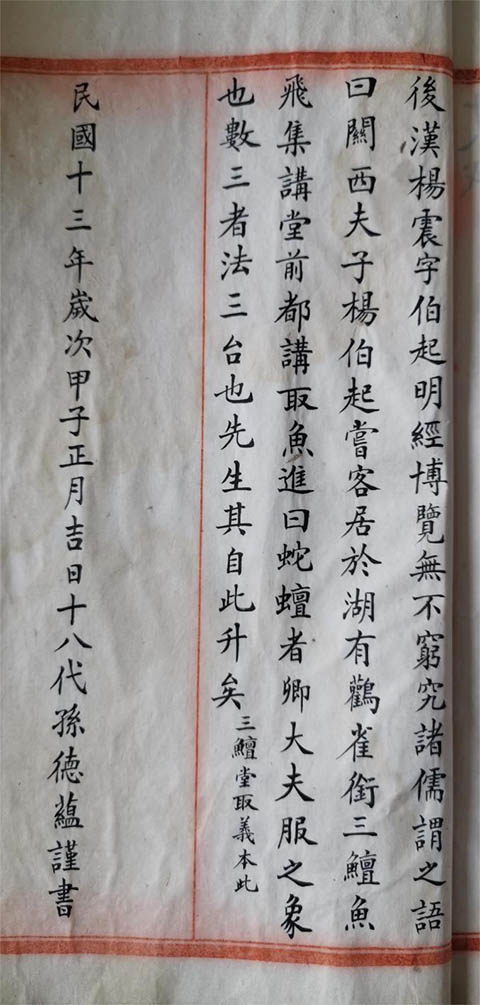 後漢楊震字伯起明經博覽無不窮究諸儒謂之語
曰關西夫子楊伯起嘗客居於湖有鸛雀銜三鱣魚
飛集講堂前都講取魚進曰蛇蟺者卿大夫服之象
也數三者法三台也先生其自此升矣三鱣堂取義本此
民國十三年歲次甲子正月吉日十八代孫德藴謹書